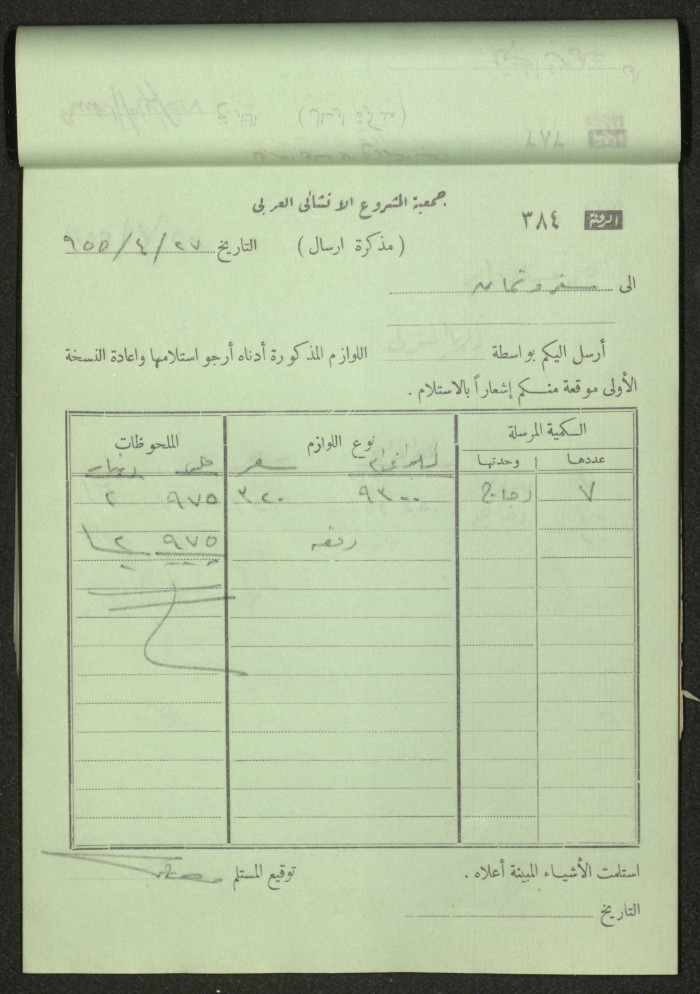 جمعية المشروع الانشائي العربي
الرقم ٣٨٤
( مذكرة ارسال ) التاريخ ٢٧ / ٤ / ٩٥٥
الى
أرسل اليكم بواسطة اللوازم المذكورة أدناه أرجو استلامها واعادة النسخة
الأولى موقعة منكم إشعاراً بالاستلام .
الكمية المرسلة نوع اللوازم الملحوظات
عددها وحدتها كيلو غرام سعر فلس
٧ دجاج ٩٣٠٠ ٣٢٠ ٩٧٥ ٢
٩٧٥ ٢
استلمت الأشياء المبينة أعلاه . توقيع المستلم
التاريخ